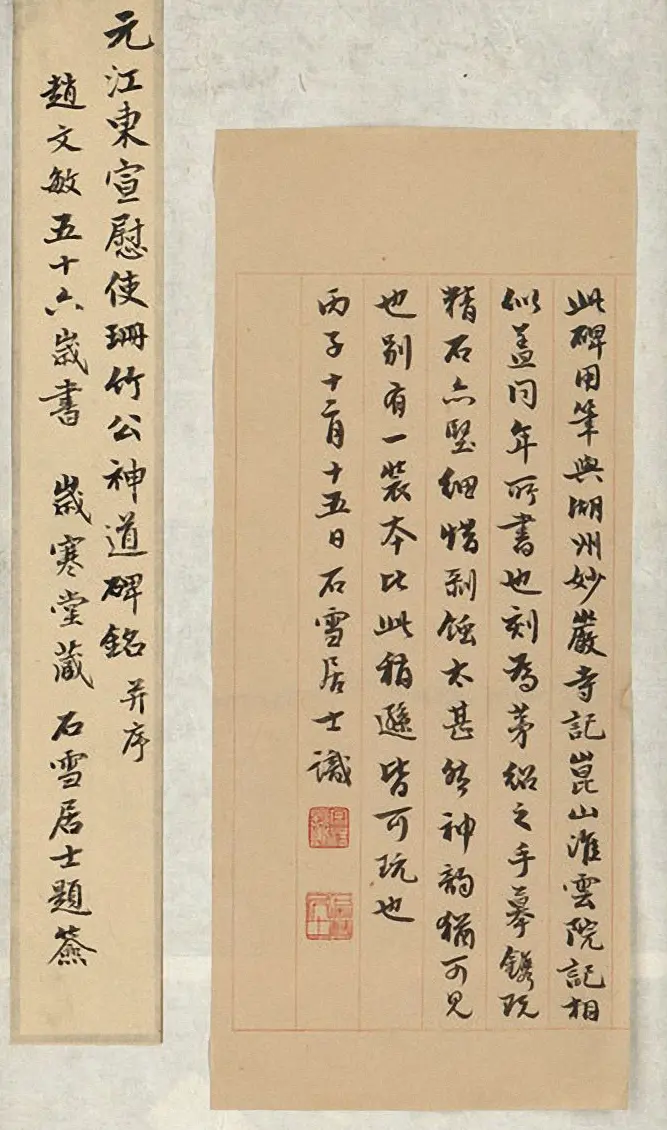 此碑用筆與湖州妙巖寺記崑山淮雲院記相
似盖同年所書也刻為茅紹之手摹鐫既
精石亦堅細惜剥蝕太甚然神韵猶可見
也別有一裝本比此稍遜皆可玩也
丙子十二月十五日石雪居士識
元江東宣慰使珊竹公神道碑銘 并序
趙文敏五十六歲書 歲寒堂藏 石雪居士題簽